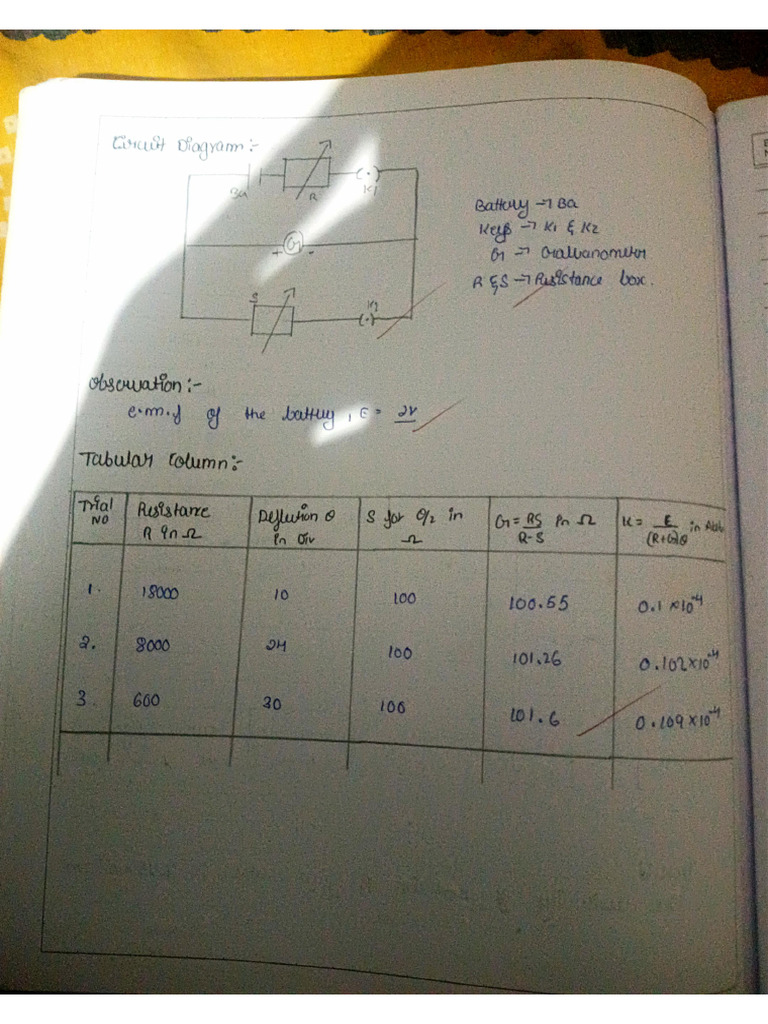 Circuit Diagram:-
Ba
R
K1
G
+ -
S
K2
Battery → Ba
Keys → K1 & K2
G → Galvanometer
R & S → Resistance box.
Observation:-
e.m.f of the battery, E = 2V
Tabular Column:-
Trial NO | Resistance R in Ω | Deflection θ in div | S for θ/2 in Ω | G = RS/R-S in Ω | K = E/(R+G)θ in A/div
1. | 18000 | 10 | 100 | 100.55 | 0.1 × 10⁻⁴
2. | 8000 | 24 | 100 | 101.26 | 0.102 × 10⁻⁴
3. | 600 | 30 | 100 | 101.6 | 0.109 × 10⁻⁴